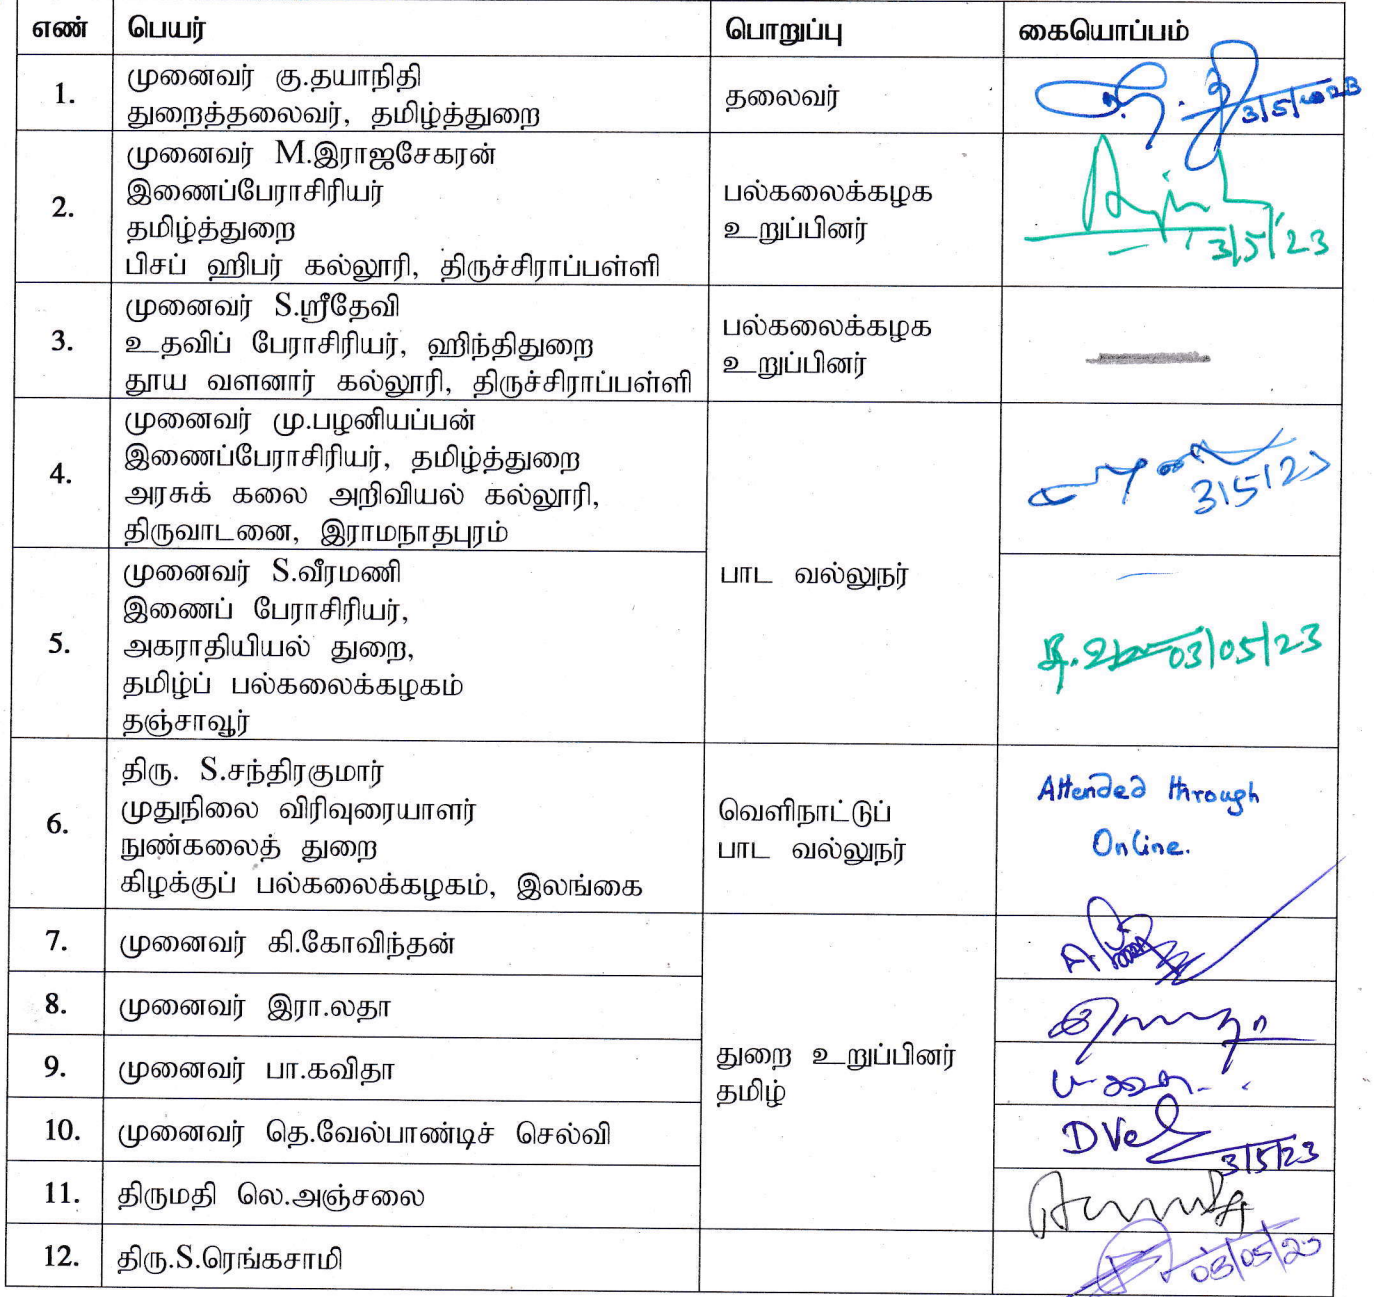 எண் பெயர் பொறுப்பு கையொப்பம்
1. முனைவர் கு.தயாநிதி
துறைத்தலைவர், தமிழ்த்துறை
தலைவர்
3/5/2023
2. முனைவர் M.இராஜசேகரன்
இணைப்பேராசிரியர்
தமிழ்த்துறை
பிசப் ஹிபர் கல்லூரி, திருச்சிராப்பள்ளி
பல்கலைக்கழக
உறுப்பினர்
3/5/23
3. முனைவர் S.ஸ்ரீதேவி
உதவிப் பேராசிரியர், ஹிந்திதுறை
தூய வளனார் கல்லூரி, திருச்சிராப்பள்ளி
பல்கலைக்கழக
உறுப்பினர்
4. முனைவர் மு.பழனியப்பன்
இணைப்பேராசிரியர், தமிழ்த்துறை
அரசுக் கலை அறிவியல் கல்லூரி,
திருவாடனை, இராமநாதபுரம்
3/5/23
5. முனைவர் S.வீரமணி
இணைப் பேராசிரியர்,
அகராதியியல் துறை,
தமிழ்ப் பல்கலைக்கழகம்
தஞ்சாவூர்
பாட வல்லுநர்
03/05/23
6. திரு. S.சந்திரகுமார்
முதுநிலை விரிவுரையாளர்
நுண்கலைத் துறை
கிழக்குப் பல்கலைக்கழகம், இலங்கை
வெளிநாட்டுப்
பாட வல்லுநர்
Attended through
Online.
7. முனைவர் கி.கோவிந்தன்
8. முனைவர் இரா.லதா
9. முனைவர் பா.கவிதா
துறை உறுப்பினர்
தமிழ்
10. முனைவர் தெ.வேல்பாண்டிச் செல்வி
DVel
3/5/23
11. திருமதி லெ.அஞ்சலை
12. திரு.S.ரெங்கசாமி
03/05/23